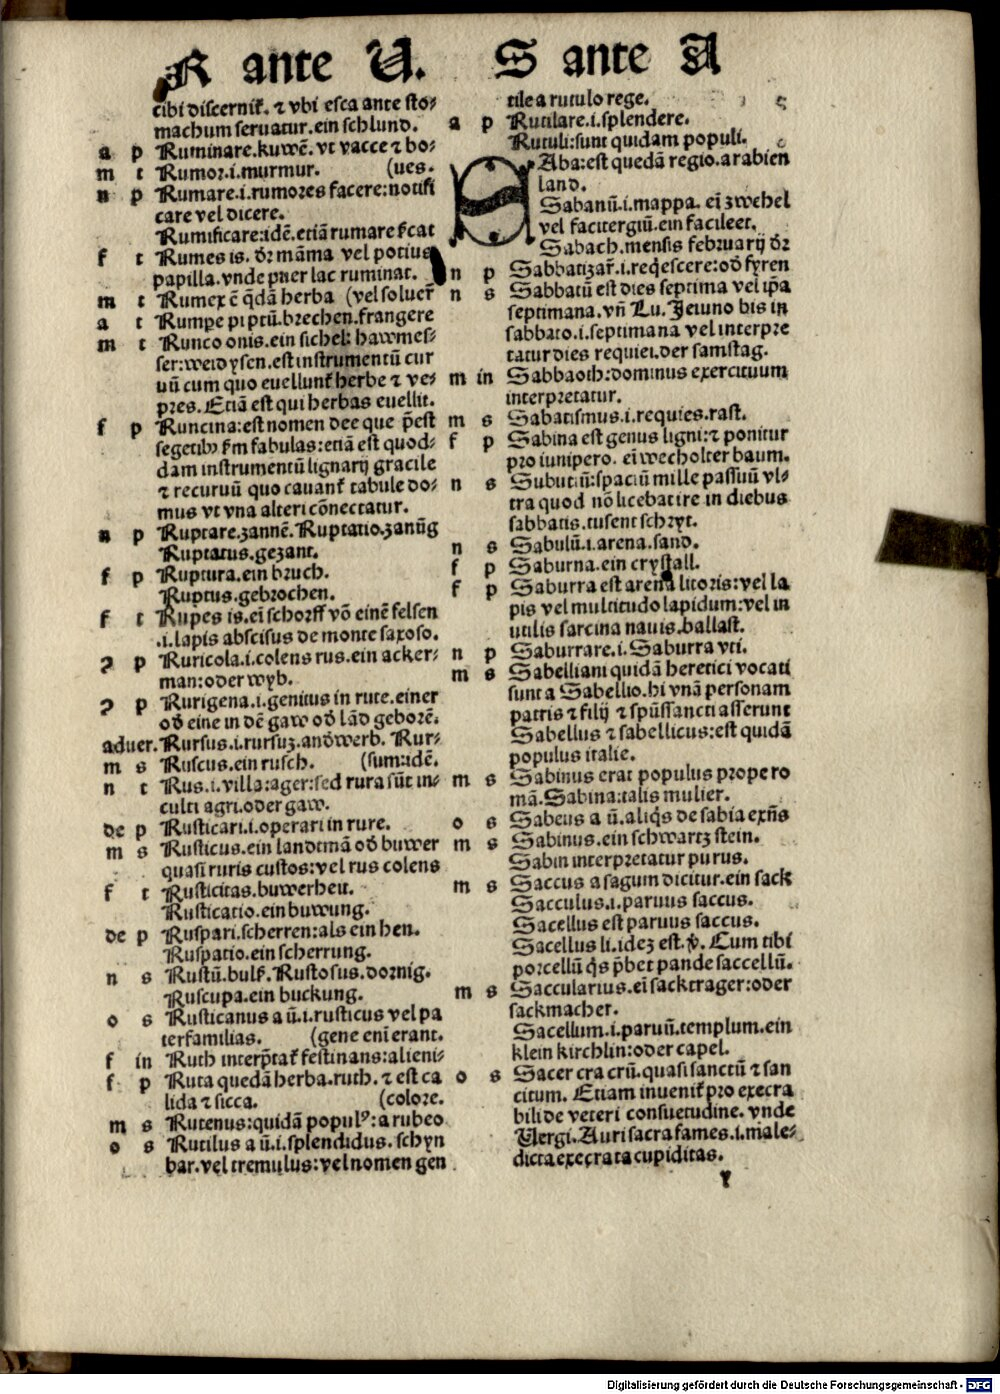 R ante U.
cibi discernit᷑. ⁊ vbi esca ante sto⸗
machum seruatur. ein schlund.
a p Ruminare. kuwē. vt vacce ⁊ bo⸗
m t Rumor .i. murmur. (ues.
n p Rumare .i. rumores facere: notifi
care vel dicere.
Rumificare: idē. etiā rumare
f t Rumes is. dr̄ māma vel potius
papilla. vnde puer lac ruminat.
m t Rumex ē q̄dā herba (vel soluer̄
a t Rumpe pi ptū. brechen. frangere
m t Runco onis. ein sichel: hawmes⸗
ser: weid ysen. est instrumentū cur
uū cum quo euellunt᷑ herbe ⁊ ve⸗
pres. Etiā est qui herbas euellit.
f p Runcina: est nomen dee que p̄est
segetibꝰ fm fabulas: etiā est quod⸗
dam instrumentū lignarij gracile
⁊ recuruū quo cauant᷑ tabule do⸗
mus vt vna alteri cōnectatur.
n p Ruptare. zannē. Ruptatio. zanūg
Ruptatus. gezant.
f p Ruptura. ein bruch.
Ruptus. gebrochen.
f t Rupes is. eī schorff vō einē felsen
.i. lapis abscisus de monte saxoso.
ꝯ p Ruricola .i. colens rus. ein acker⸗
man: oder wyb.
ꝯ p Rurigena .i. genitus in rure. einer
od̄ eine in dē gaw od̄ lād geborē.
aduer. Rursus .i. rursuz. andwerb. Rur⸗
m s Ruscus. ein rusch. (sum: idē.
n t Rus .i. villa: ager: sed rura sūt in⸗
culti agri. oder gaw.
de p Rusticari .i. operari in rure.
m s Rusticus. ein landtmā od̄ buwer
quasi ruris custos: vel rus colens
f t Rusticitas. buwerheit.
Rusticatio. ein buwung.
de p Ruspari. scherren: als ein hen.
Ruspatio. ein scherrung.
n s Rustū. Rustosus. dornig.
Ruscupa. ein buckung.
o s Rusticanus a ū. i. rusticus vel pa
terfamilias. (gene enī erant.
f in Ruth interp̄tat᷑ festinans: alieni⸗
f p Ruta quedā herba. ruth. ⁊ est ca
lida ⁊ sicca. (colore.
m s Rutenus: quidā populꝰ: a rubeo
o s Rutilus a ū. i. splendidus. schyn
bar. vel tremulus: vel nomen gen
S ante A
tile a rutulo rege.
a p Rutilare .i. splendere.
Rutuli: sunt quidam populi.
SAba: est quedā regio. arabien
land.
Sabanū .i. mappa. eī zwehel
vel facitergiū. ein facileet.
Sabach. mensis februarij dr̄
n p Sabbatizar̄ .i. reqͥescere: od̄ fyren
n s Sabbatū est dies septima vel ip̄a
septimana. vn̄ Lu. Jeiuno bis in
sabbato .i. septimana vel interpre
tatur dies requiei. der samstag.
m in Sabbaoth: dominus exercituum
interpretatur.
m s Sabatismus .i. requies. rast.
f p Sabina est genus ligni: ⁊ ponitur
pro iunipero. eī wecholter baum.
n s Subutiū: spaciū mille passuū vl⸗
tra quod nō licebat ire in diebus
sabbatis. tusent schryt.
n s Sabulū .i. arena. sand.
f p Saburna. ein crystall.
f p Saburra est arena litoris: vel la
pis vel multitudo lapidum: vel in
utilis sarcina nauis. ballast.
n p Saburrare .i. Saburra vti.
m s Sabelliani quidā heretici vocati
sunt a Sabellio. hi vnā personam
patris ⁊ filij ⁊ sp̄ussancti asserunt
Sabellus ⁊ sabellicus: est quidā
populus italie.
m s Sabinus erat populus prope ro
mā. Sabina: talis mulier.
o s Sabeus a ū. aliqͥs de sabia exn̄s
m s Sabinus. ein schwartz stein.
Sabin interpretatur purus.
m s Saccus a sagum dicitur. ein sack
Sacculus .i. paruus saccus.
Sacellus est paruus saccus.
Sacellus li. idez est. v̄. Cum tibi
porcellū qͥs p̄bet pande saccellū.
m s Saccularius. eī sacktrager: oder
sackmacher.
Sacellum .i. paruū. templum. ein
klein kirchlin: oder capel.
o s Sacer cra crū. quasi sanctū ⁊ san
citum. Etiam inuenit᷑ pro execra
bili de veteri consuetudine. vnde
Uergi. Auri sacra fames .i. male⸗
dicta execrata cupiditas.
Y
Digitalisierung gefördert durch die Deutsche Forschungsgemeinschaft - DFG